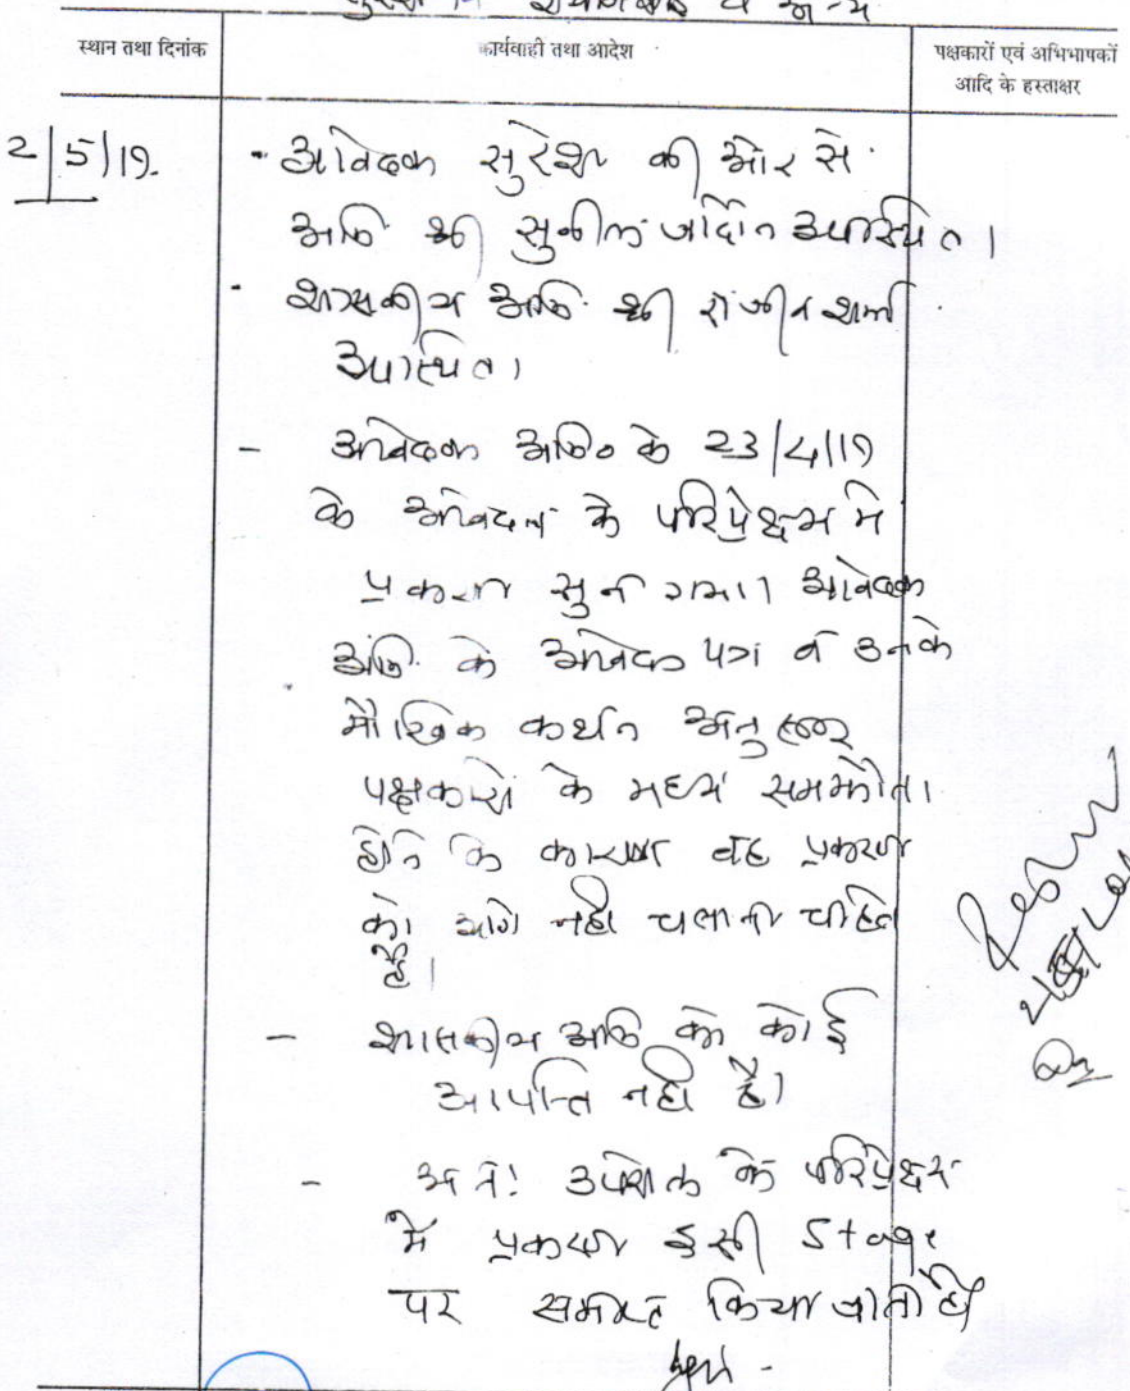 व अन्य
स्थान तथा दिनांक
कार्यवाही तथा आदेश
पक्षकारों एवं अभिभाषकों
आदि के हस्ताक्षर
2/5/19.
- आवेदक सुरेश की ओर से
अभि. श्री सुनील जादौन उपस्थित।
- शासकीय अभि. श्री संजीव शर्मा
उपस्थित।
- आवेदक अभि० के 23/4/19
के आवेदन के परिप्रेक्ष्य में
प्रकरण सुना गया। आवेदक
अभि. के आवेदन पत्र व उनके
मौखिक कथन अनुसार
पक्षकारों के मध्य समझौता
होने के कारण वह प्रकरण
को आगे नहीं चलाना चाहते
हैं।
- शासकीय अभि को कोई
आपत्ति नहीं है।
- अतः उपरोक्त के परिप्रेक्ष्य
में प्रकरण इसी Stage
पर समाप्त किया जाता है